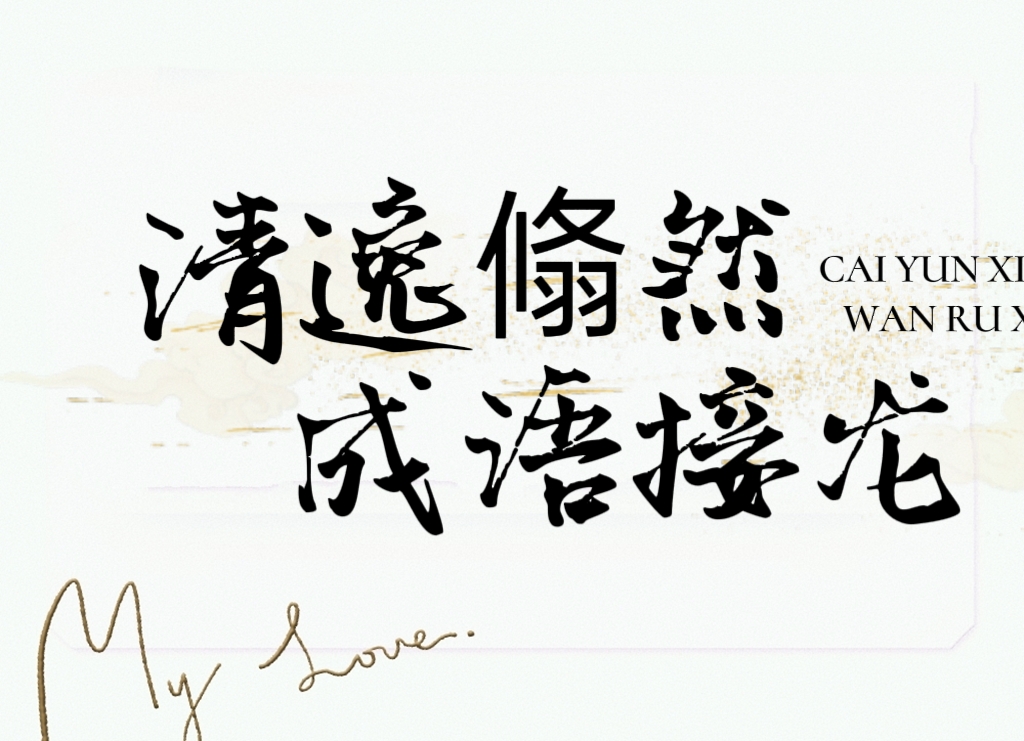 清逸翛然
CAI YUN XI
WAN RU X
成语接龙
My Love.